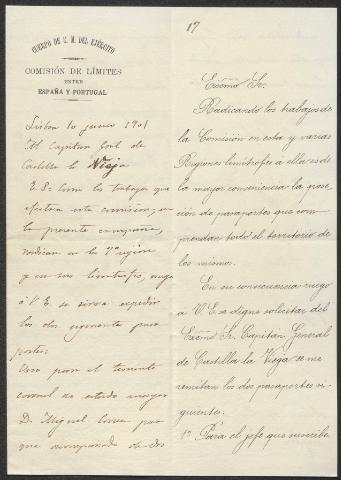 CUERPO DE E. M. DEL EJÉRCITO
COMISIÓN DE LÍMITES
ENTRE
ESPAÑA Y PORTUGAL
Lisboa 10 junio 1901
Al Capitan Gral de
Castilla la Vieja
Como los trabajos que
efectua esta comision, en
la presente campaña,
radican en la 7ª region
y en sus limitrofes, ruego
á V.E. se sirva expedir
los dos siguientes pasa
portes:
Uno para el teniente
coronel de estado mayor
D. Miguel Correa para
que acompañado de dos
17
Excmo Sr.
Radicando los trabajos de
la Comisión en esta y varias
Regiones limítrofes á ella es de
la mayor conveniencia la pose
ción de pasaportes que com
prendan todo el territorio de
los mismos.
En su consecuencia ruego
á V.E. se digne solicitar del
Excmo Sr. Capitán General
de Castilla la Vieja se me
remitan los dos pasaportes si
guientes:
1º Para el jefe que suscribe